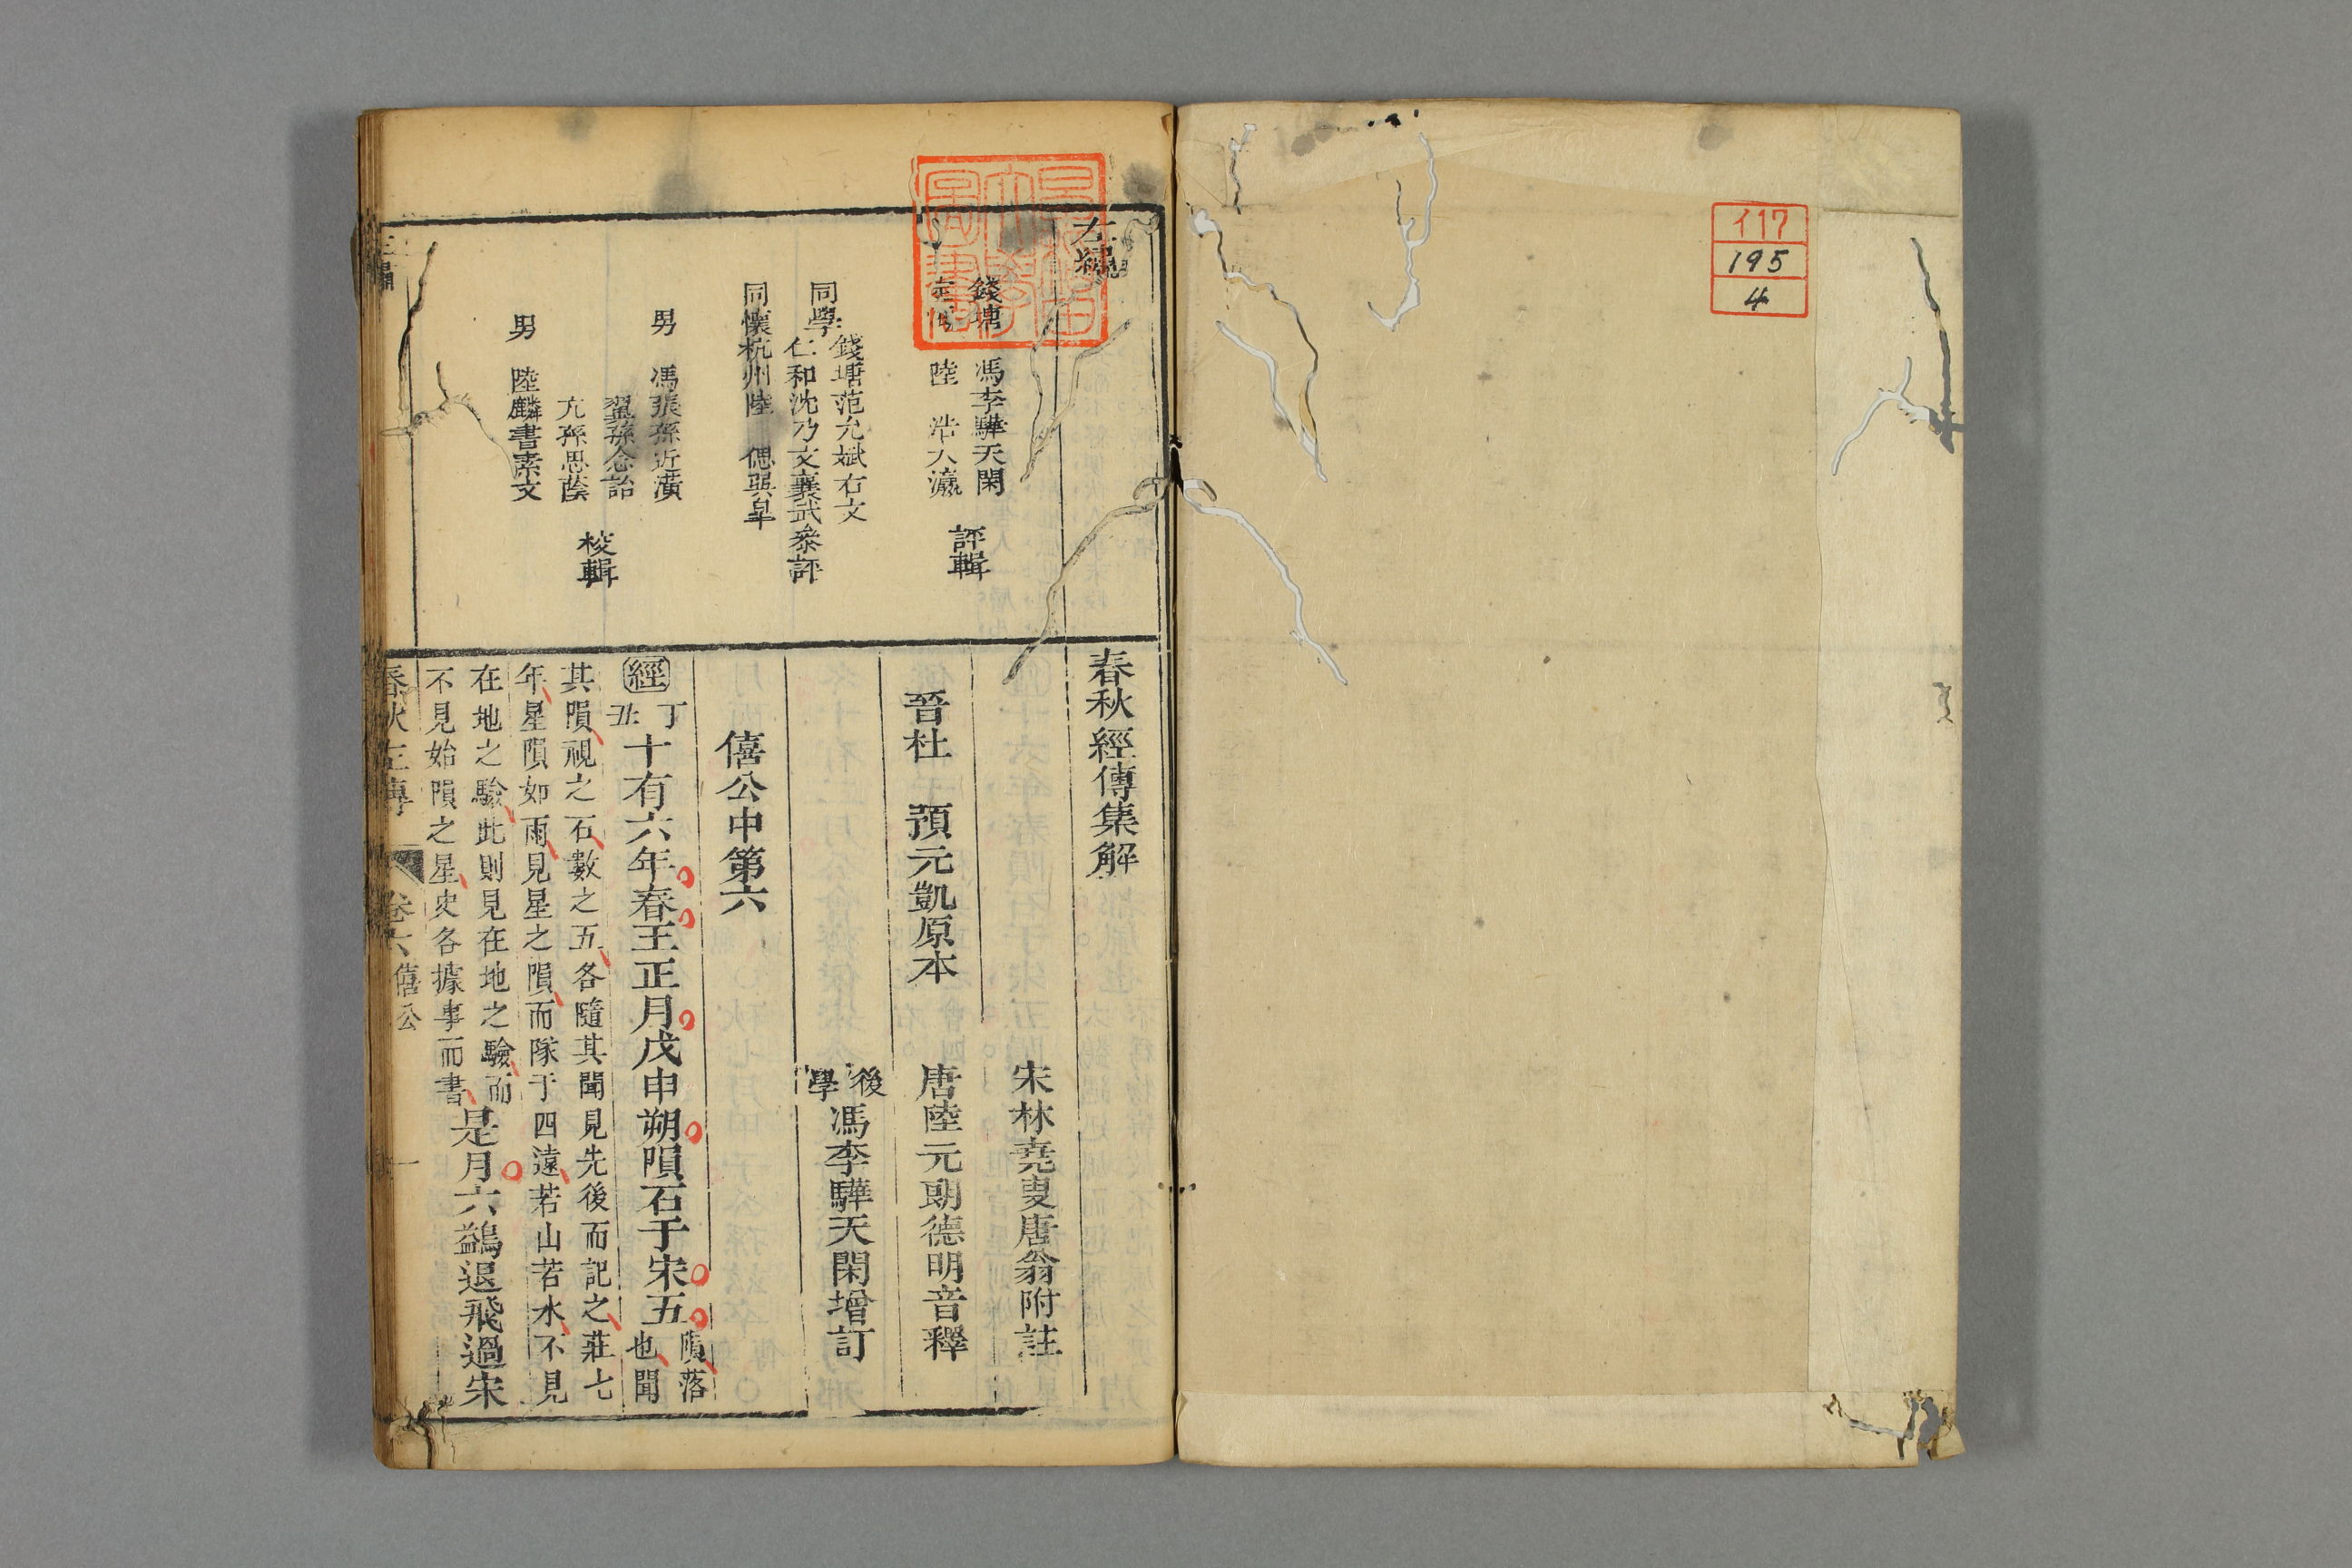 イ17
195
4
早稲田大學圖書
左繡
錢塘 馮李驊天閑
陸 浩大瀛
評輯
同學
錢塘范允斌右文
仁和沈乃文襄武參評
同懷杭州陸 偲巽皐
男 馮張孫近潢
翼孫念詒
亢孫思蔭
男 陸麟書素文
校輯
春秋經傳集解
宋林堯叟唐翁附註
晉杜 預元凱原本
唐陸元朗德明音釋
後學馮李驊天閑增訂
僖公中第六
經丁丑十有六年春王正月戊申朔隕石于宋五隕落也聞
其隕視之石數之五各隨其聞見先後而記之莊七
年星隕如雨見星之隕而隊于四遠若山若水不見
在地之驗此則見在地之驗而
不見始隕之星史各據事而書
是月六鷁退飛過宋
春秋左傳 卷六 僖公 一